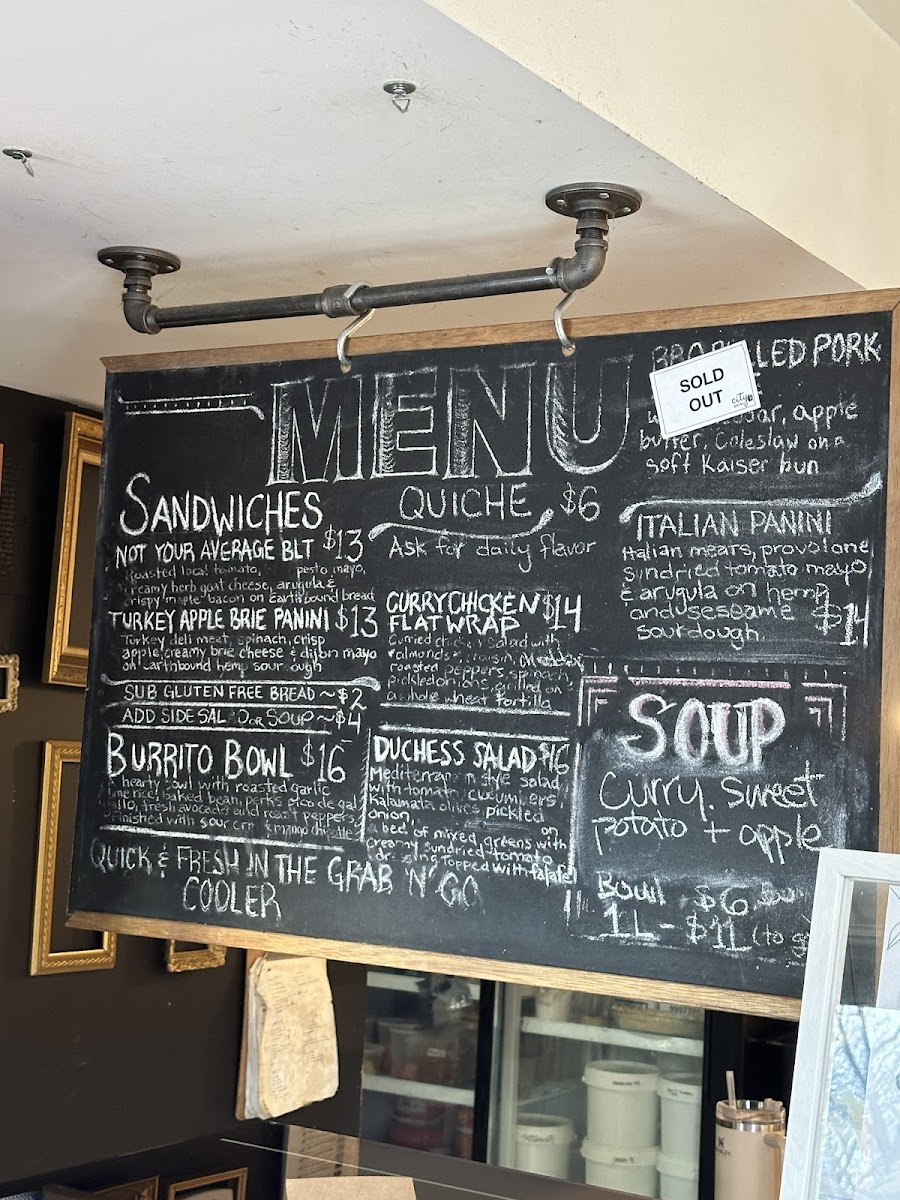 MENU
SANDWICHES
NOT YOUR AVERAGE BLT $13
Roasted local tomato, pesto mayo,
creamy herb goat cheese, arugula &
crispy "maple" bacon on Earthbound bread
TURKEY APPLE BRIE PANINI $13
Turkey deli meat, spinach, crisp
apple, creamy brie cheese & dijon mayo
on Earthbound hemp sourdough
SUB GLUTEN FREE BREAD ~ $2
ADD SIDE SAL D OR SOUP ~ $4
BURRITO BOWL $16
hearty bowl with roasted garlic
lime rice, baked bean, perks pico de gal
fresh avocado and roast peppers,
Finished with sour cr & mango chipotle
QUICK & FRESH IN THE GRAB 'N' GO
COOLER
QUICHE $6
Ask for daily flavor
CURRY CHICKEN $14
FLAT WRAP
Curried chicken salad with
almonds & raisin, cheddar
roasted peppers, spinach,
pickled onions, grilled on
a whole wheat tortilla
DUCHESS SALAD $16
Mediterranean style salad
with tomato, cucumbers,
Kalamata olives, pickled
onion, on
a bed of mixed greens with
creamy sundried tomato
dressing topped with falafel
LED PORK
SOLD
OUT
city
apple
butter, Coleslaw on a
soft Kaiser bun
ITALIAN PANINI
Italian meats, provolone
sundried tomato mayo
& arugula on hemp
and seseame $14
sourdough
SOUP
Curry. sweet
potato + apple
Bowl $6
1L - $11 (to g